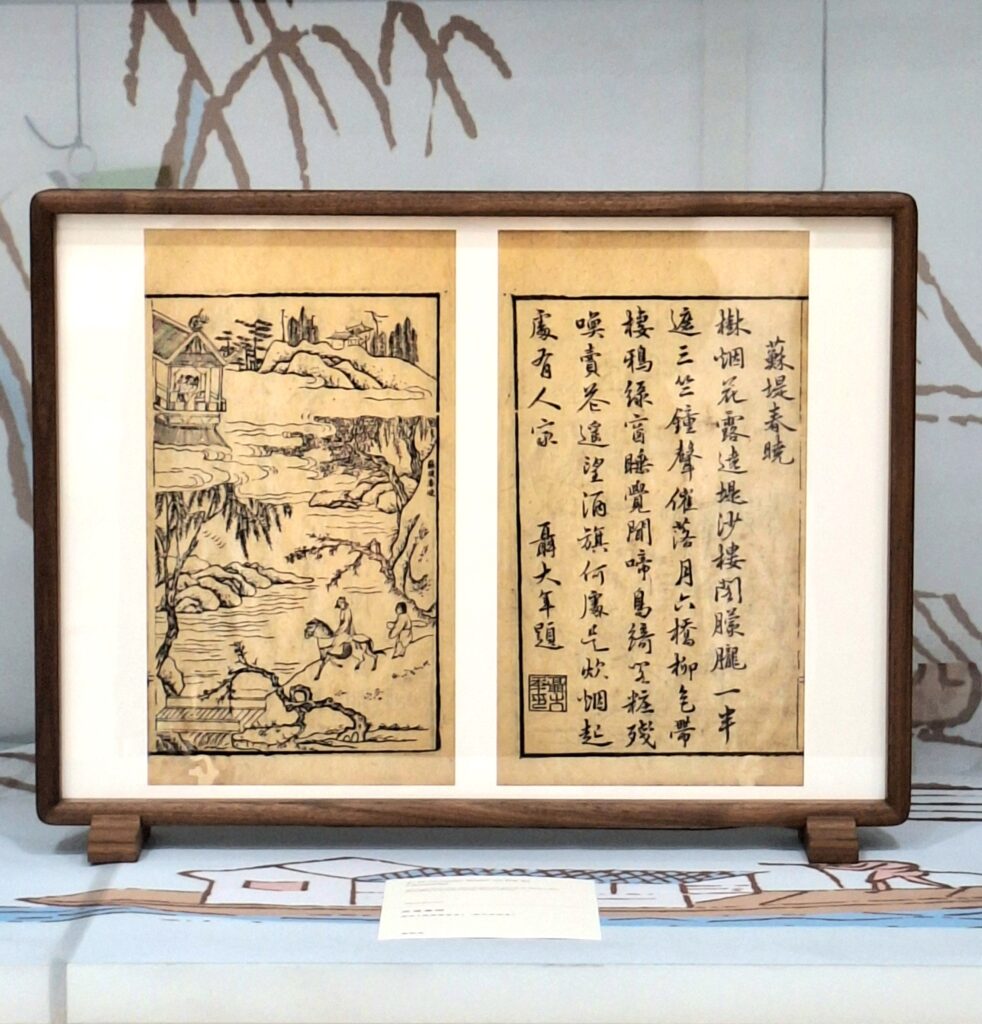 蘇堤春曉
樹烟花露遶堤沙樓閣朦朧一半
遮三竺鐘聲催落月六橋柳色帶
棲鴉綠窗睡覺聞啼鳥綺閣粧殘
喚賣花遙望酒旗何處是炊烟起
處有人家
聶大年題
蘇堤春曉